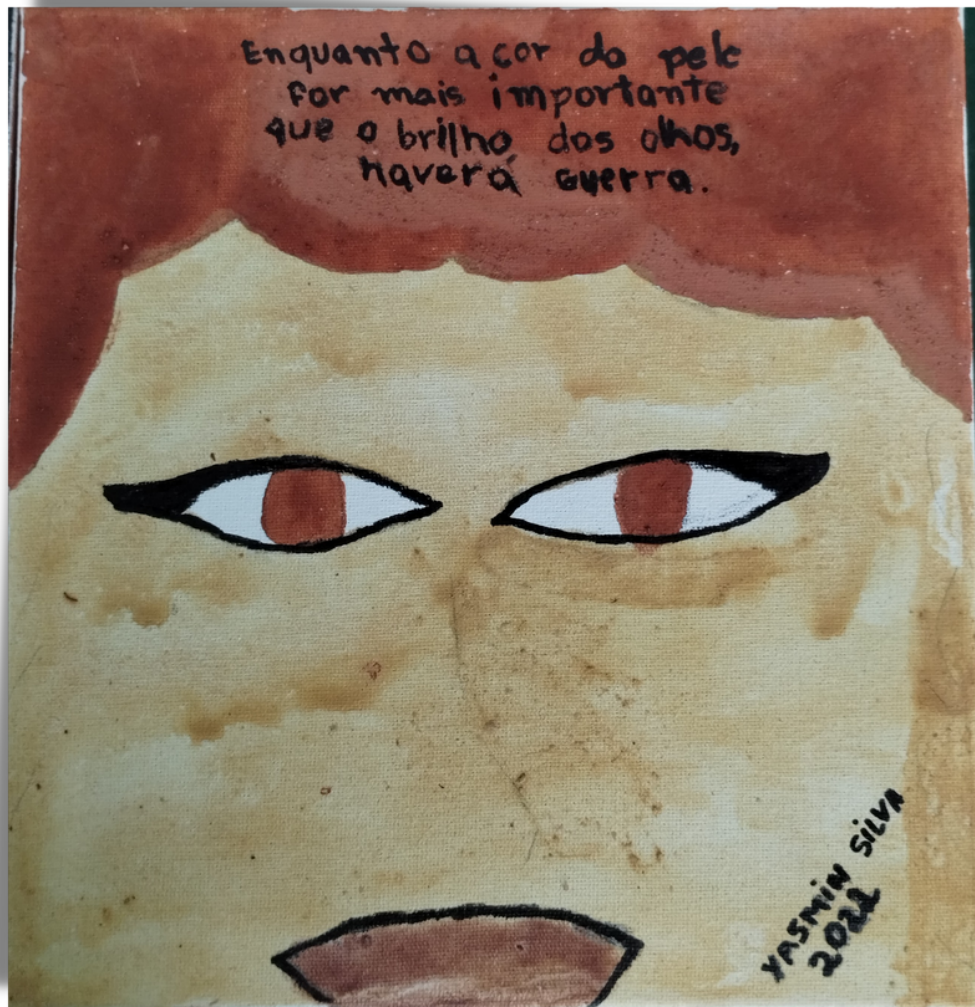 Enquanto a cor do pele
for mais importante
que o brilho dos olhos,
haverá guerra.
YASMIN SILVA
2022